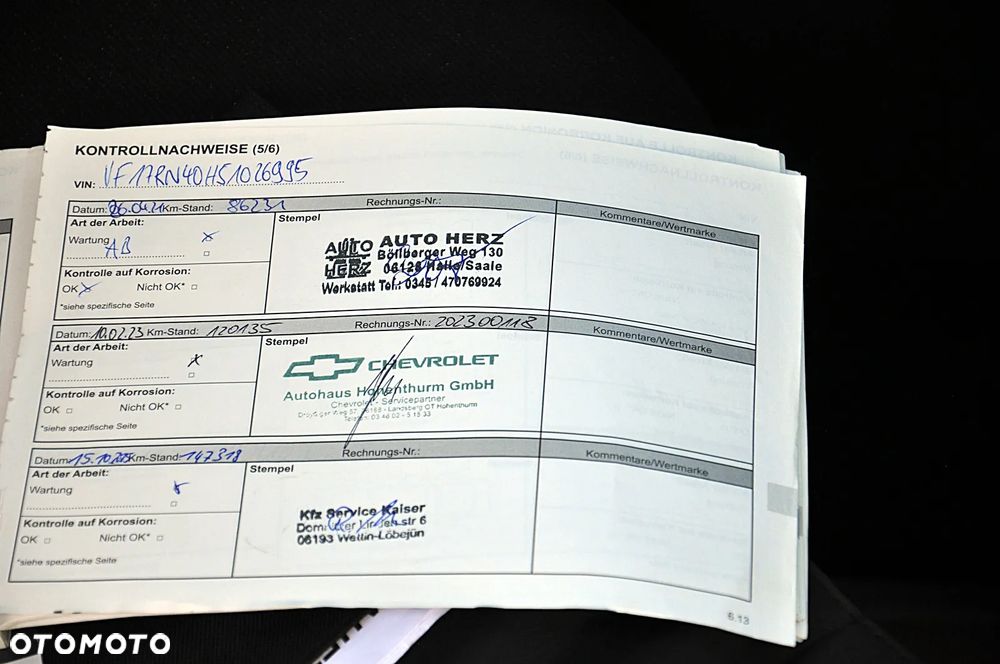 KONTROLLNACHWEISE (5/6)
VIN: VF17RN40H51026995
Datum: 26.04.21 Km-Stand: 86231 Rechnungs-Nr.: Kommentare/Wertmarke
Art der Arbeit: Stempel
Wartung
AB
AUTO HERZ AUTO HERZ
Böllberger Weg 130
06128 Halle/Saale
Werkstatt Tel.: 0345 / 470769924
Kontrolle auf Korrosion:
OK Nicht OK*
*siehe spezifische Seite
Datum: 10.02.23 Km-Stand: 120135 Rechnungs-Nr.: 202300118 Kommentare/Wertmarke
Art der Arbeit: Stempel
Wartung
CHEVROLET
Autohaus Hohenthurm GmbH
Chevrolet - Servicepartner
06188 - Landsberg OT Hohenthurm
Kontrolle auf Korrosion:
OK Nicht OK*
*siehe spezifische Seite
Datum: 15.10 Km-Stand: 147318 Rechnungs-Nr.: Kommentare/Wertmarke
Art der Arbeit: Stempel
Wartung
Kfz Service Kaiser
6
06193 Wettin-Löbejün
Kontrolle auf Korrosion:
OK Nicht OK*
*siehe spezifische Seite
6.13
OTOMOTO